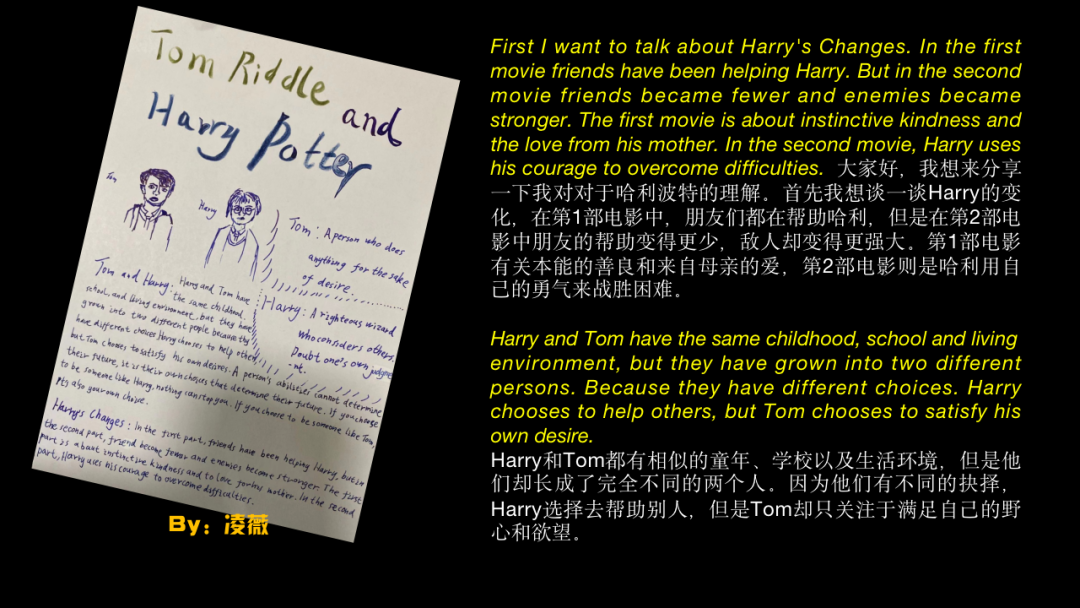 Tom Riddle and
Harry Potter
Tom
Harry
Tom: A person who does
anything for the sake
of desire.
Harry: A righteous wizard
who considers others.
Doubt one's own judgme
nt.
Tom and Harry: Harry and Tom have
the same childhood,
school, and living environment, but they have
grown into two different people because they
have different choices Harry chooses to help others,
but Tom chooses to satisfy his own desires. A person's abilities cannot determine
their future, it is their own choices that determine their future. If you choose
to be someone like Harry, nothing can stop you. If you choose to be someone like Tom,
it's also your own choice.
Harry's Changes: In the first part, friends have been helping Harry, but in
the second part, friend become fewer and enemies become stronger. The first
part is about instinctive kindness and to love mother. In the second
part, Harry uses his courage to overcome difficalties.
By：凌薇
First I want to talk about Harry's Changes. In the first
movie friends have been helping Harry. But in the second
movie friends became fewer and enemies became
stronger. The first movie is about instinctive kindness and
the love from his mother. In the second movie, Harry uses
his courage to overcome difficulties. 大家好，我想来分享
一下我对对于哈利波特的理解。首先我想谈一谈Harry的变
化，在第1部电影中，朋友们都在帮助哈利，但是在第2部电
影中朋友的帮助变得更少，敌人却变得更强大。第1部电影
有关本能的善良和来自母亲的爱，第2部电影则是哈利用自
己的勇气来战胜困难。
Harry and Tom have the same childhood, school and living
environment, but they have grown into two different
persons. Because they have different choices. Harry
chooses to help others, but Tom chooses to satisfy his
own desire.
Harry和Tom都有相似的童年、学校以及生活环境，但是他
们却长成了完全不同的两个人。因为他们有不同的抉择，
Harry选择去帮助别人，但是Tom却只关注于满足自己的野
心和欲望。